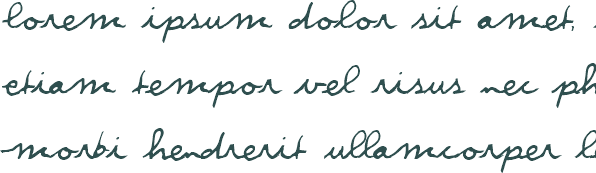 lorem ipsum dolor sit amet,
etiam tempor vel risus nec
morbi hendrerit ullamcorper